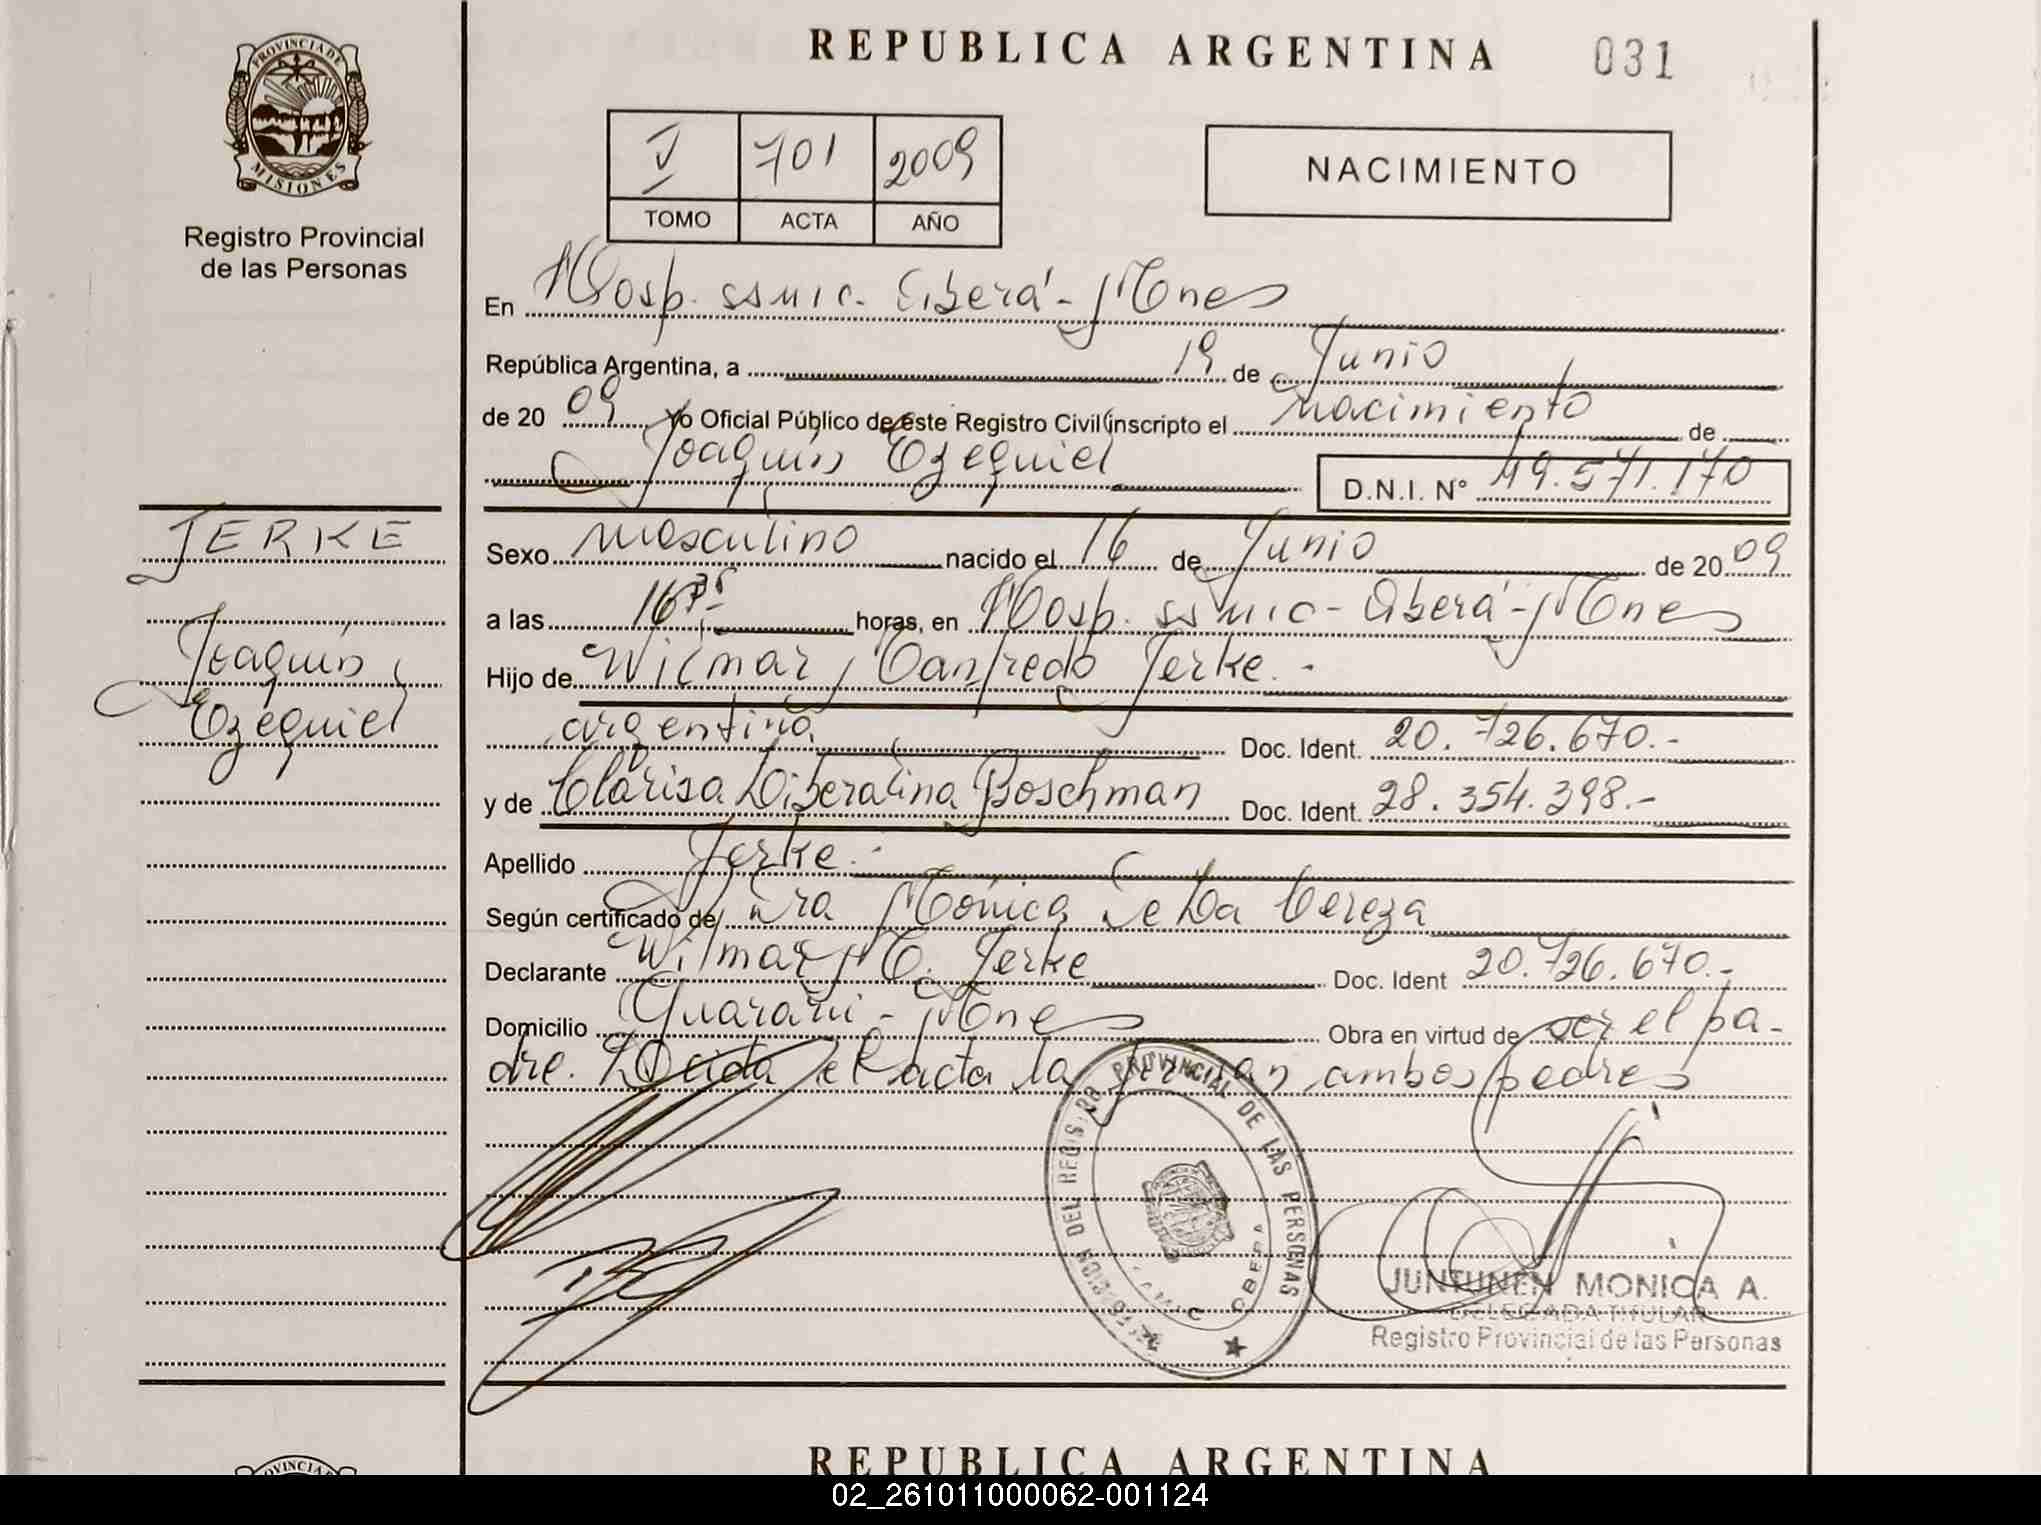 REPUBLICA ARGENTINA 031
PROVINCIA DE
MISIONES
Registro Provincial
de las Personas
V 701 2009
TOMO ACTA AÑO
NACIMIENTO
En Hosp. ssmic - Oberá - Mnes
República Argentina, a 19 de Junio
de 20 09 Yo Oficial Público de este Registro Civil inscripto el nacimiento de
Joaquín Ezequiel
D.N.I. Nº 49.571.170
JERKE
Joaquín
Ezequiel
Sexo masculino nacido el 16 de Junio de 20 09
a las 16 35 horas, en Hosp. ssmic - Oberá - Mnes
Hijo de Wilmar Manfredo Jerke.-
argentina Doc. Ident. 20.726.670.-
y de Clarisa Liberalina Boschman Doc. Ident. 28.354.398.-
Apellido Jerke.-
Según certificado de Dra Mónica De La Cereza
Declarante Wilmar M. Jerke Doc. Ident 20.726.670.-
Domicilio Guaraní - Mnes Obra en virtud de ser el pa-
dre. Leída el acta la firman ambos padres
DEL REGISTRO PROVINCIAL DE LAS PERSONAS
OBERA
JUNTUNEN MONICA A.
DELEGADA TITULAR
Registro Provincial de las Personas
REPUBLICA ARGENTINA
02_261011000062-001124